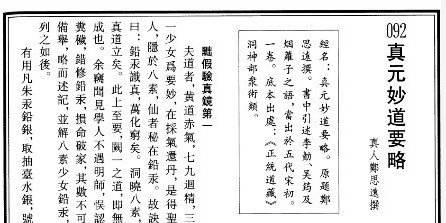 092 真元妙道要略
真人鄭思遠撰
經名：真元妙道要略。原題鄭
思遠撰。書中引述李勣、吳筠及
烟蘿子之語，當出於五代宋初。
一卷。底本出處：《正統道藏》
洞神部衆術類。
黜假驗真鏡第一
夫道者，黄道赤氣，七九迴精，三
一少女爲要妙，在採氣還丹，是得聖
人，隱於八素，仙者秘在鉛汞。故訣
曰：鉛汞識真，萬化窮矣。洞曉八素，
真道立矣。此上至要，闕一之道，即無
成也。余竊聞見學人不遇明師，誤認
糞穢，錯修鉛汞，損命破家，其數不可
備舉，略而述記，並解八素少女鉛汞，
列之如後。
有用凡朱汞鉛銀，取抽臺水銀，號